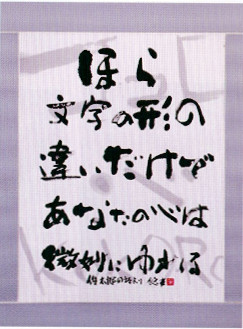 ほら
文字の形の
違いだけで
あなたの心は
微妙にゆれる